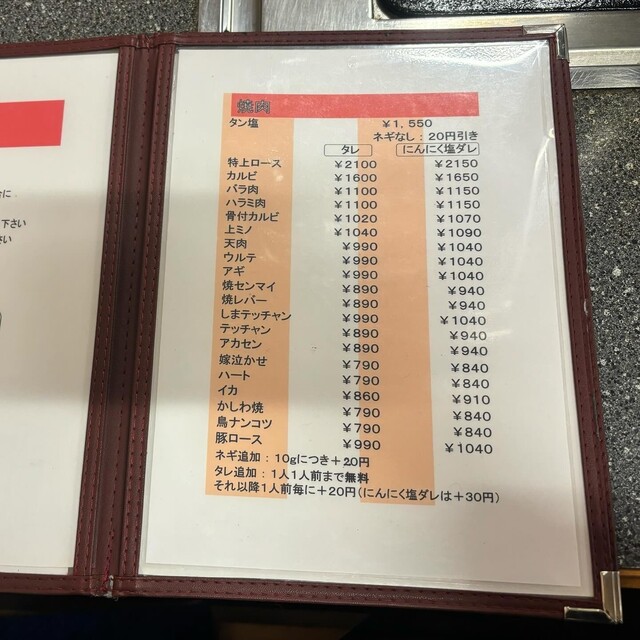 に
下さい
さい
焼肉
タン塩 ￥1,550
ネギなし：20円引き
タレ にんにく塩ダレ
特上ロース ￥2100 ￥2150
カルビ ￥1600 ￥1650
バラ肉 ￥1100 ￥1150
ハラミ肉 ￥1100 ￥1150
骨付カルビ ￥1020 ￥1070
上ミノ ￥1040 ￥1090
天肉 ￥990 ￥1040
ウルテ ￥990 ￥1040
アギ ￥990 ￥1040
焼センマイ ￥890 ￥940
焼レバー ￥890 ￥940
しまテッチャン ￥990 ￥1040
テッチャン ￥890 ￥940
アカセン ￥890 ￥940
嫁泣かせ ￥790 ￥840
ハート ￥790 ￥840
イカ ￥860 ￥910
かしわ焼 ￥790 ￥840
鳥ナンコツ ￥790 ￥840
豚ロース ￥990 ￥1040
ネギ追加：10gにつき＋20円
タレ追加：1人1人前まで無料
それ以降1人前毎に＋20円(にんにく塩ダレは＋30円)